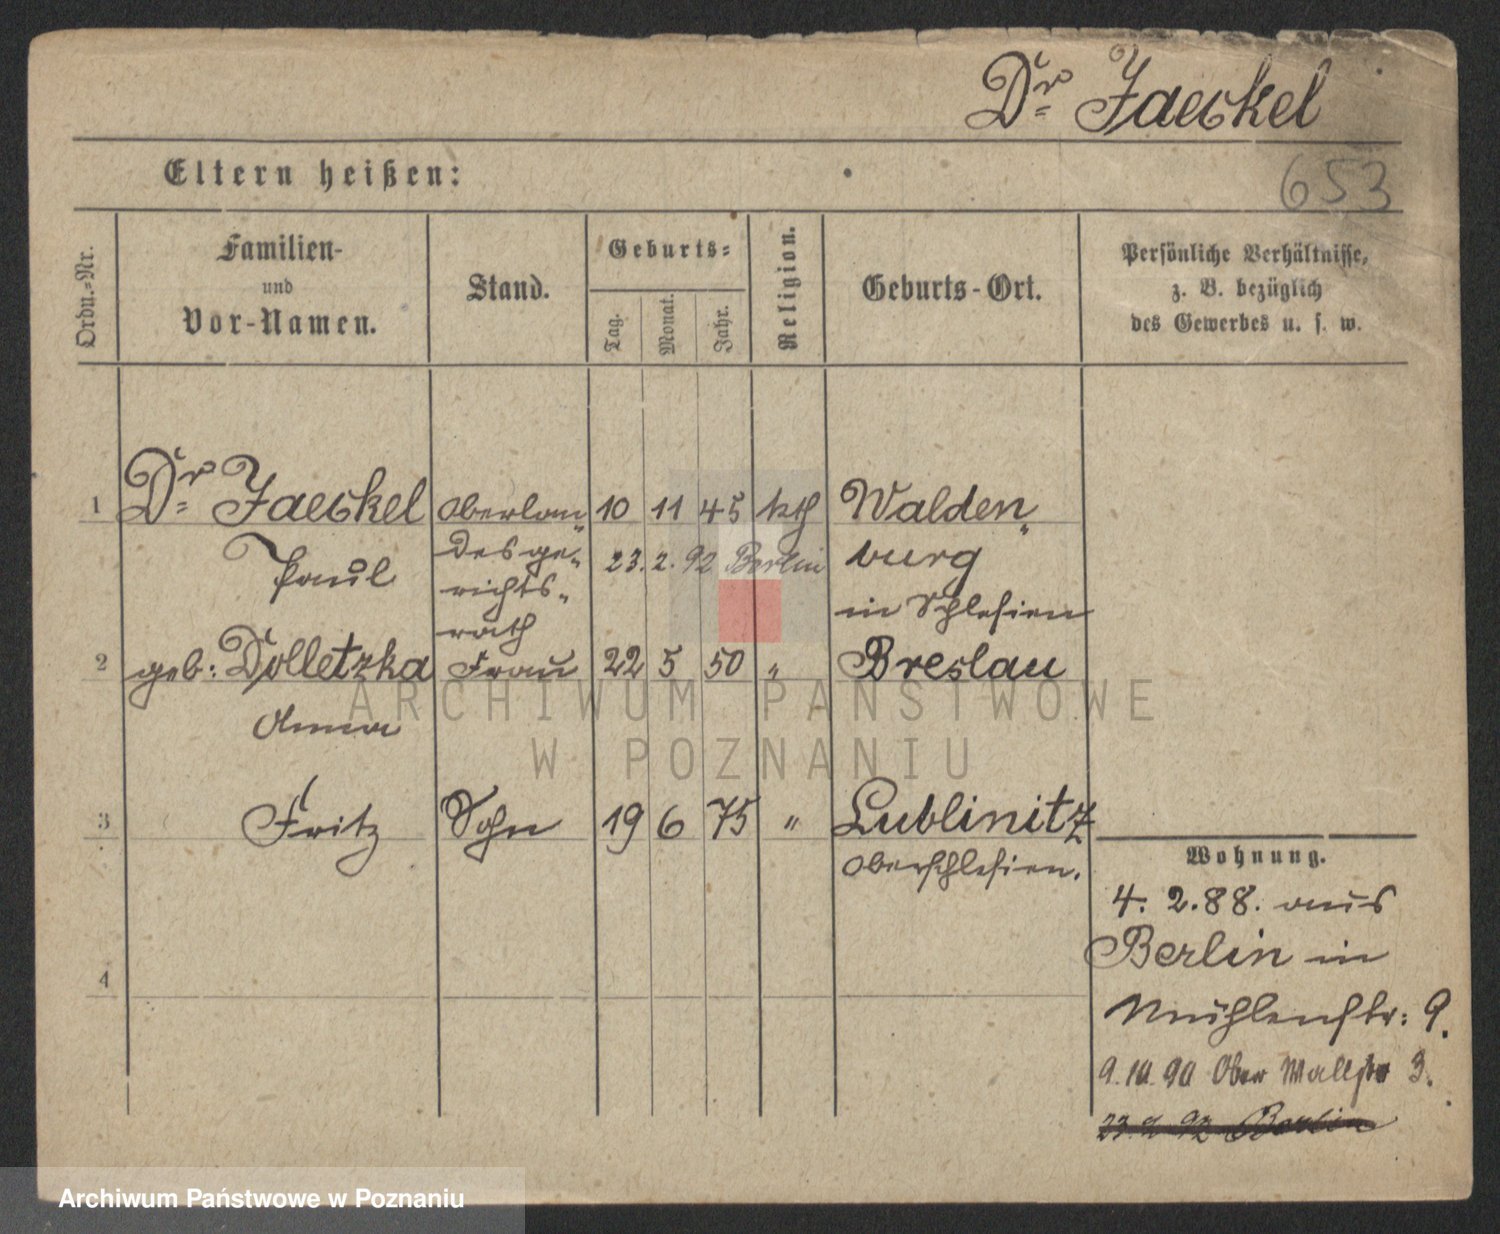 Dr Jaeckel
653
Eltern heißen:
Ordn.-Nr.
Familien-
und
Vor-Namen.
Stand.
Geburts-
Tag.
Monat.
Jahr.
Religion.
Geburts-Ort.
Persönliche Verhältnisse,
z. B. bezüglich
des Gewerbes u. s. w.
1 Dr Jaeckel Oberlan- 10 11 45 kth Walden-
Paul desge- 23. 2. 92 Berlin burg
richts- in Schlesien
rath
2 geb: Dolletzka Frau 22 5 50 " Breslau
Anna
3 Fritz Sohn 19 6 75 " Lublinitz
Oberschlesien.
4
Wohnung.
4. 2. 88. aus
Berlin in
Mühlenstr: 9.
9. 10. 90 Ober Wallstr 3.
23. 2. 92 Berlin
ARCHIWUM PAŃSTWOWE
W POZNANIU
Archiwum Państwowe w Poznaniu